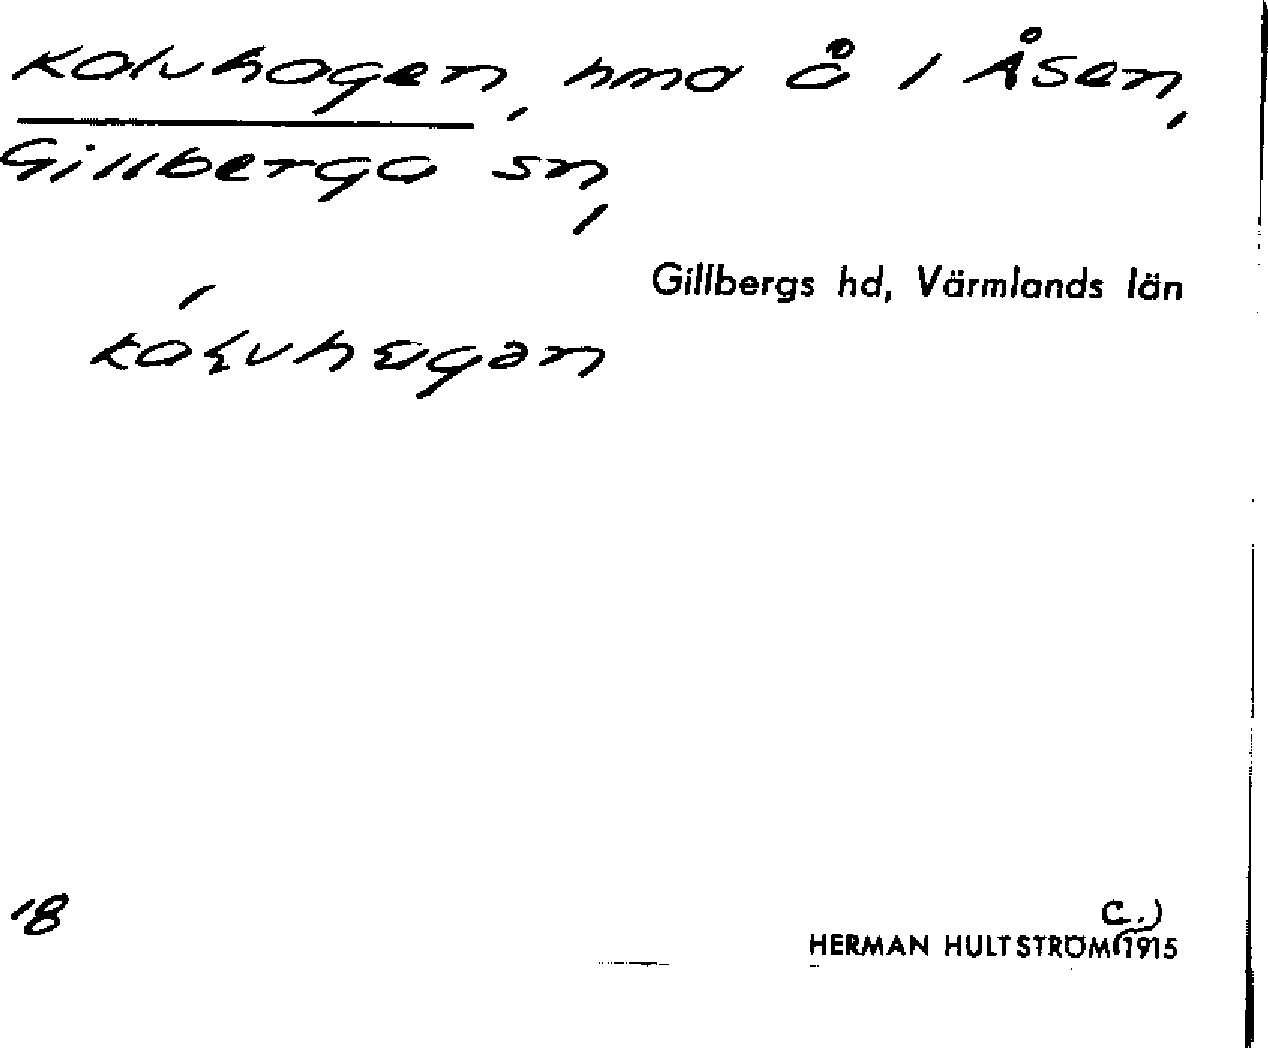 Kalvhagen, hmd å i Åsen,
Gillberga sn,
Gillbergs hd, Värmlands län
18
C.)
HERMAN HULTSTRÖM (1915